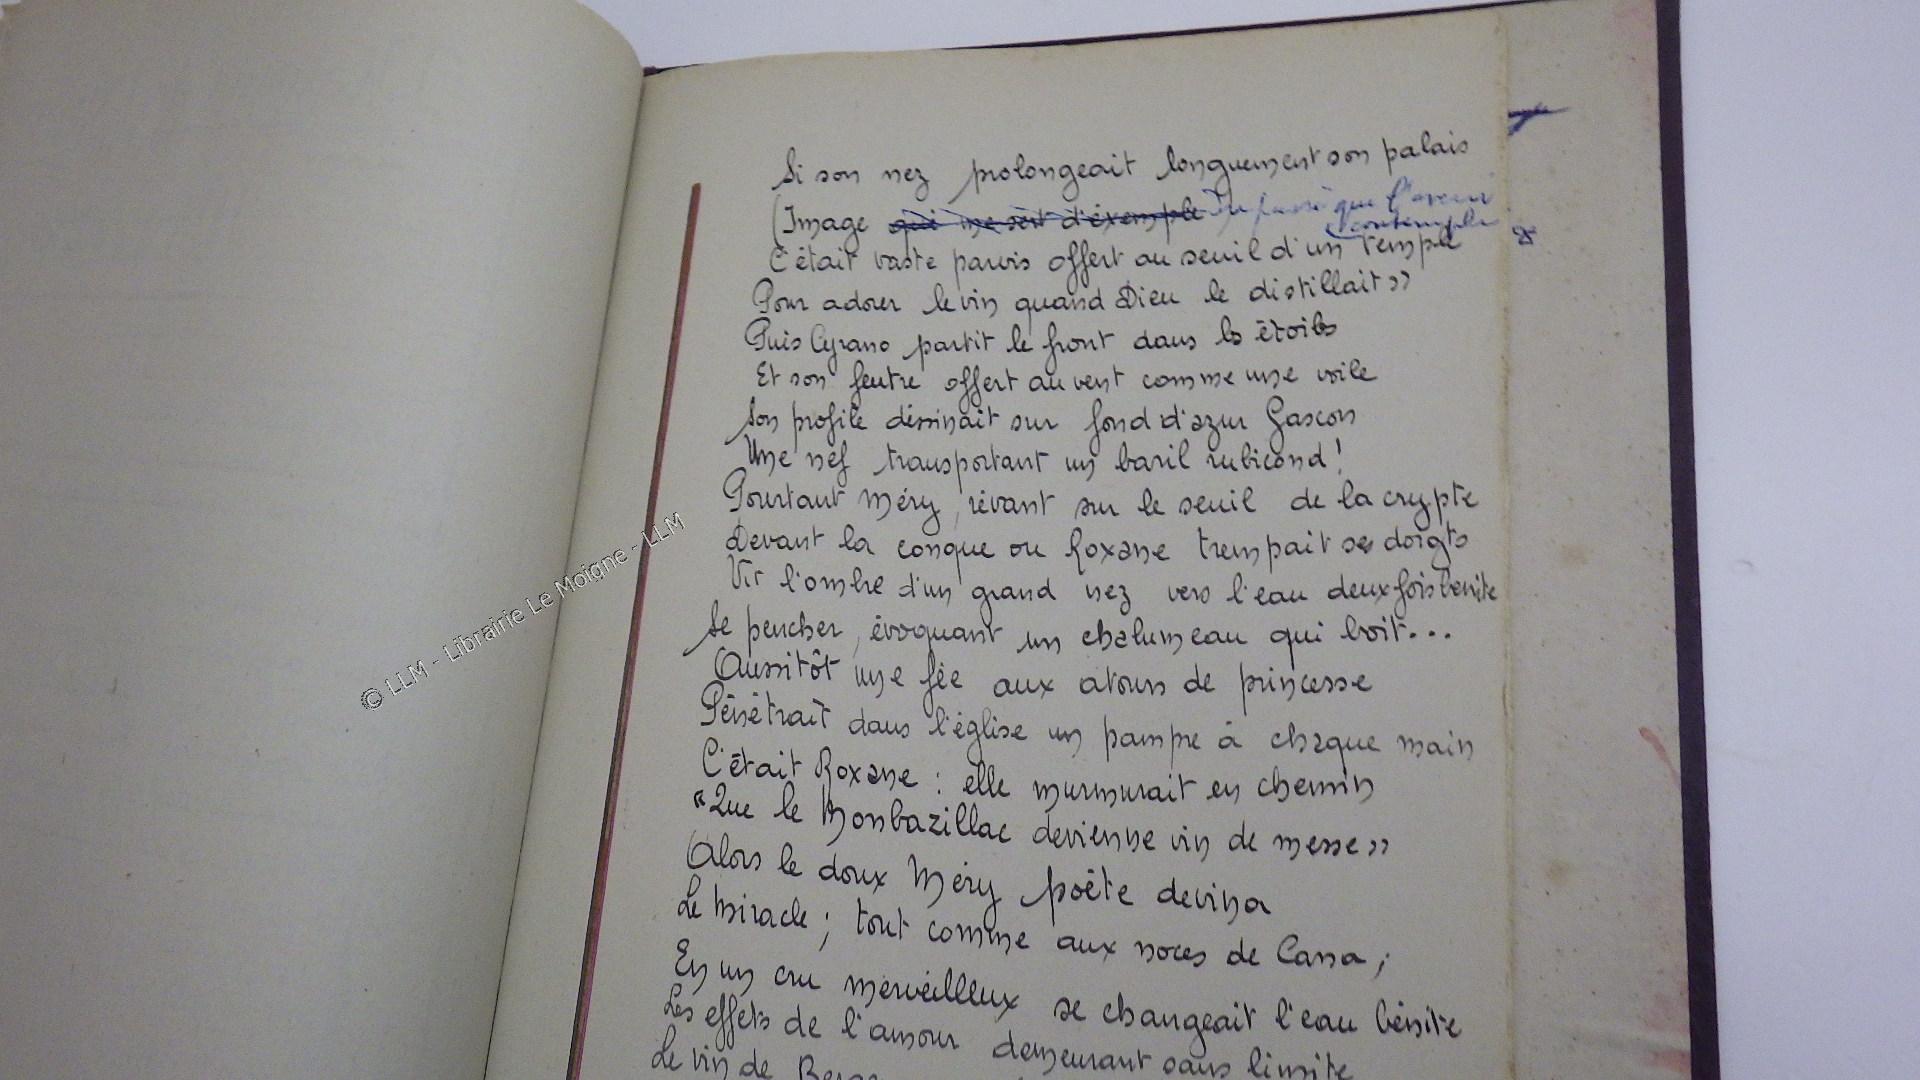 Si son nez prolongeait longuement son palais
(Image qui me sert d'éxemple du passé que l'avenir
contemple
C'était vaste parvis offert au seuil d'un Temple
Pour adorer le vin quand Dieu le distillait »
Puis Cyrano partit le front dans les étoiles
Et son feutre offert au vent comme une voile
Son profile dessinait sur fond d'azur Gascon
Une nef transportant un baril rubicond !
Pourtant Méry, rêvant sur le seuil de la crypte
Devant la conque ou Roxane trempait ses doigts
Vit l'ombre d'un grand nez vers l'eau deux fois benite
Se pencher, évoquant un chalumeau qui boit...
Aussitôt une fée aux atours de princesse
Pénétrait dans l'église un pampre à chaque main
C'était Roxane : elle murmurait en chemin
"Que le Monbazillac devienne vin de messe »
Alors le doux Méry poète devina
Le miracle ; tout comme aux noces de Cana ;
En un cru merveilleux se changeait l'eau bénite
Les effets de l'amour demeurant sans limite
Le vin de
© LLM - Librairie Le Moigne - LLM